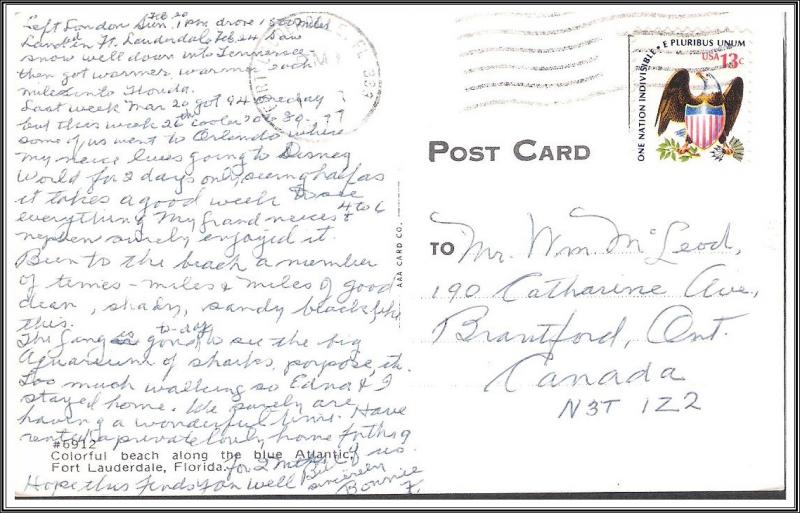 Feb 20
Left London Sun. 1 PM drove 1500 miles
Landed in Ft. Lauderdale Feb 24 Saw
snow well down into Tennessee
then got warmer & warmer each
mile into Florida.
Last week Mar 20 got 94 one day
but this week 26th cooler 70 80
some of us went to Orlando where
my neice lives going to Disney
World for 2 days only, seeing half as
it takes a good week to see
everything My Grand neices &
4 to 6
nephew surely enjoyed it.
Been to the beach a number
of times - miles & miles of good
clean, shady, sandy beach like
this.
The gang is going to-day to see the big
Aquareium of sharks, porpose, etc.
Too much walking so Edna & I
stayed home. We surely are
having a wonderful time. Have
rented a private lovely home for the 9
of us
for 2 mths
Hope this finds you well
sincerely
Bonnie
#6912
Colorful beach along the blue Atlantic,
Fort Lauderdale, Florida.
AAA CARD CO.
POST CARD
ONE NATION INDIVISIBLE • E PLURIBUS UNUM
USA 13c
TO
Mr. Wm McLeod,
190 Catharine Ave,
Brantford, Ont.
Canada
N3T 1Z2